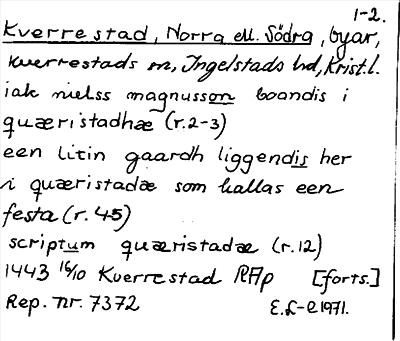 1-2.
Kverrestad, Norra ell. Södra, byar,
Kverrestads sn, Ingelstads hd, Krist.l.
iak nielss magnusson boandis i
quæristadhæ (r.2-3)
een litin gaardh liggendis her
i quæristadæ som kallas een
festa (r. 4-5)
scriptum quæristadæ (r.12)
1443 16/10 Kverrestad RAp [forts.]
Rep. nr. 7372 E.L-e 1971.